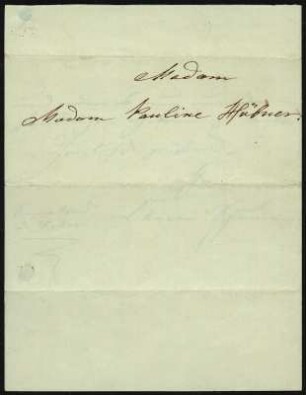 Madam
Madam Pauline Hübner.